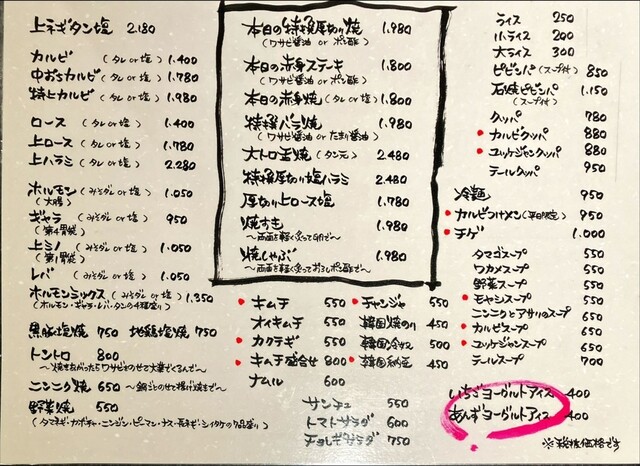 上ネギタン塩 2.180
カルビ (タレor塩) 1.400
中おちカルビ (タレor塩) 1.780
特上カルビ (タレor塩) 1.980
ロース (タレor塩) 1.400
上ロース (タレor塩) 1.780
上ハラミ (タレor塩) 2.280
ホルモン (みそダレor塩) 1.050
(大腸)
ギャラ (みそダレor塩) 950
(第4胃袋)
上ミノ (みそダレor塩) 1.050
(第1胃袋)
レバ (みそダレor塩) 1.050
ホルモンミックス (みそダレor塩) 1.350
(ホルモン・ギャラ・レバ・タンの4種盛り)
黒豚塩焼 750 地鶏塩焼 750
トントロ 800
〜焼きあがったらワサビをのせて大葉でくるんで〜
ニンニク焼 650 〜鍋ごとのせて揚げ焼きまで〜
野菜焼 550
(タマネギ・カボチャ・ニンジン・ピーマン・ナス・長ネギ・シイタケの7品盛り)
本日の特撰厚切り焼 1.980
(ワサビ醤油 or ポン酢)
本日の赤身ステーキ 1.800
(ワサビ醤油 or ポン酢)
本日の赤身焼 (タレor塩) 1.800
特撰バラ焼 1.980
(ワサビ醤油 or たまり醤油)
大トロ玉焼 (タン元) 2.480
特撰厚切り塩ハラミ 2.480
厚切り上ロース塩 1.780
焼すき 1.980
〜両面を軽く炙って卵で〜
焼しゃぶ 1.980
〜両面を軽く炙っておろしポン酢で〜
キムチ 550
オイキムチ 550
カクテギ 550
キムチ盛合せ 800
ナムル 600
チャンジャ 550
韓国焼のり 450
韓国冷奴 500
韓国納豆 450
サンチュ 550
トマトサラダ 600
チョレギサラダ 750
ライス 250
小ライス 200
大ライス 300
ビビンバ (スープ付) 850
石焼ビビンバ 1.150
(スープ付)
クッパ 780
カルビクッパ 880
ユッケジャンクッパ 880
テールクッパ 950
冷麺 950
カルビつけメン (平日限定) 950
チゲ 1.000
タマゴスープ 550
ワカメスープ 550
野菜スープ 550
モヤシスープ 550
ニンニクとアサリのスープ 550
カルビスープ 550
ユッケジャンスープ 550
テールスープ 700
いちごヨーグルトアイス 400
あんずヨーグルトアイス 400
※税抜価格です